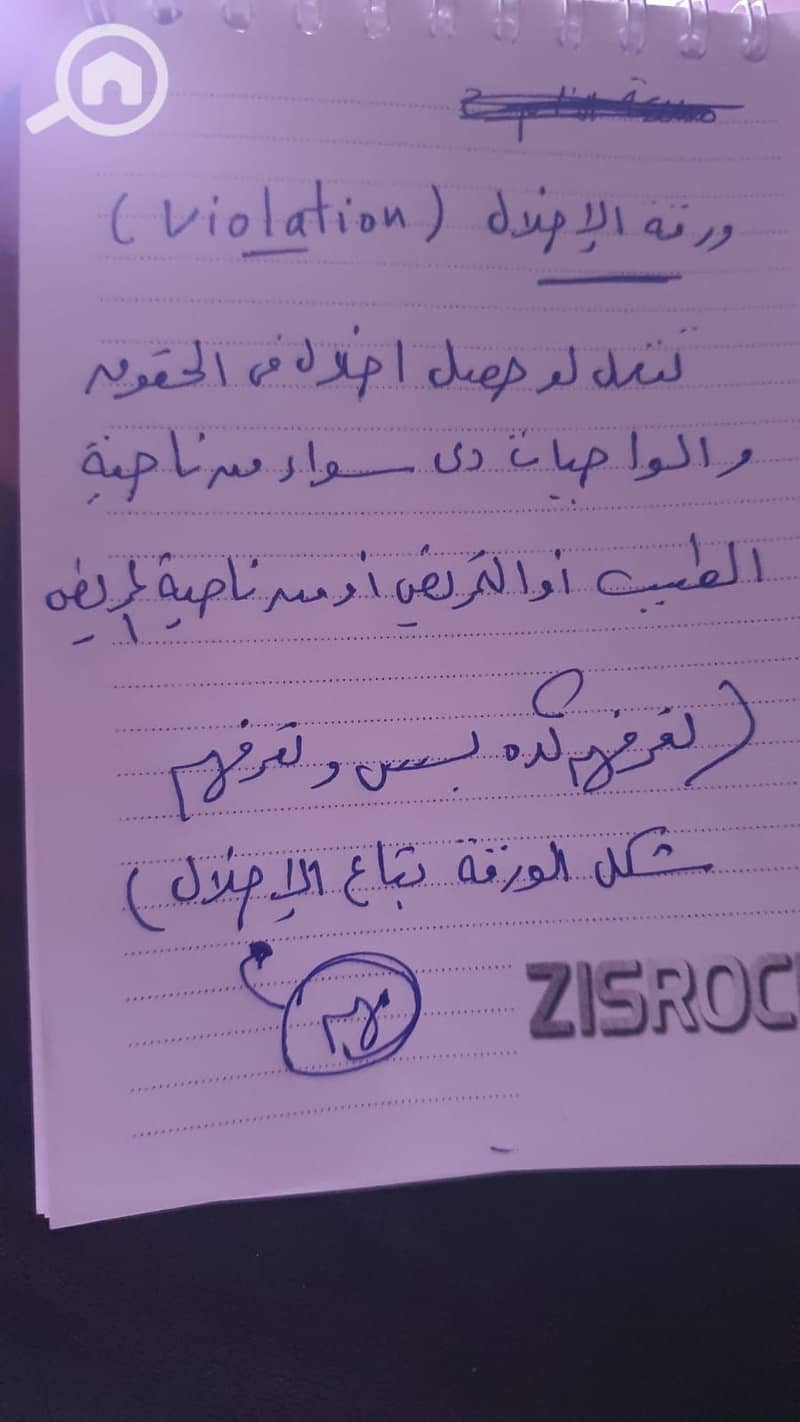 ورقة الإخلال (Violation)
تتعمل لو حصل اخلال فى الحقوق
والواجبات دى سواء من ناحية
الطبيب أو التمريض أو من ناحية المريض
(تعرفهم كده بس وتعرفهم
شكل الورقة بتاع الإخلال)
مهم
ZISROC